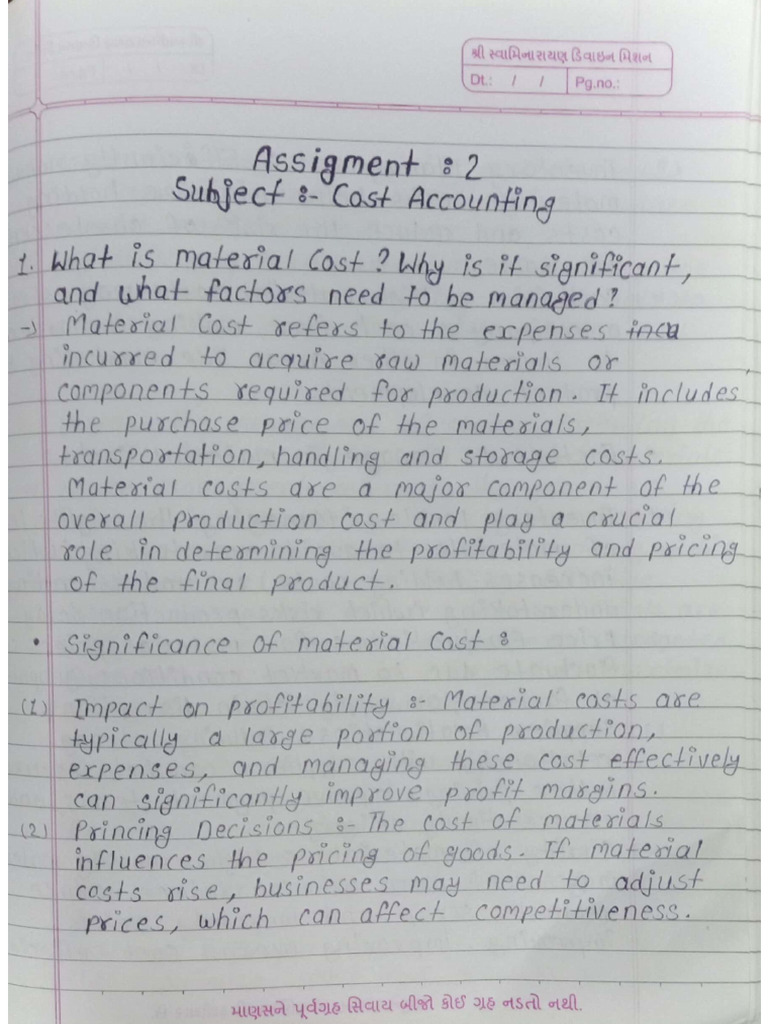 શ્રી સ્વામિનારાયણ ડિવાઇન મિશન
Dt.: / / Pg.no.:
Assigment : 2
Subject :- Cost Accounting
1. What is material Cost? Why is it significant,
and what factors need to be managed?
→ Material Cost refers to the expenses incu
incurred to acquire raw materials or
components required for production. It includes
the purchase price of the materials,
transportation, handling and storage costs.
Material costs are a major component of the
overall production cost and play a crucial
role in determining the profitability and pricing
of the final product.
• Significance of material Cost :
(1) Impact on profitability :- Material costs are
typically a large portion of production,
expenses, and managing these cost effectively
can significantly improve profit margins.
(2) Princing Decisions :- The cost of materials
influences the pricing of goods. If material
costs rise, businesses may need to adjust
prices, which can affect competitiveness.
માણસને પૂર્વગ્રહ સિવાય બીજો કોઈ ગ્રહ નડતો નથી.